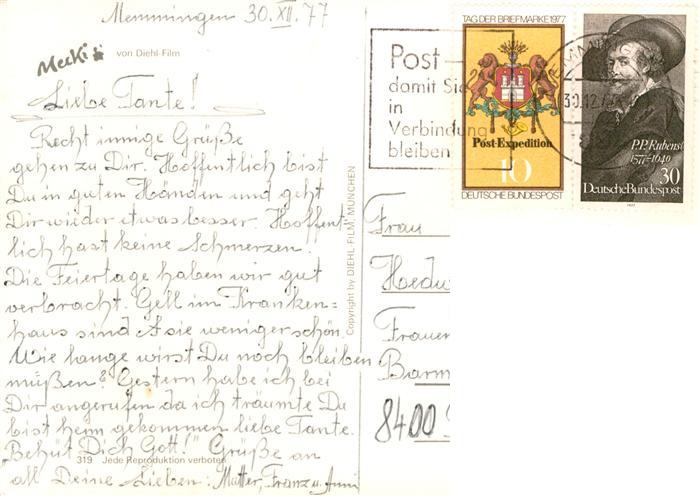 Memmingen 30. XII. 77
Mecki
von Diehl-Film
Liebe Tante!
Recht innige Grüße
gehen zu Dir. Hoffentlich bist
Du in guten Händen und geht
Dir wieder etwas besser. Hoffent-
lich hast keine Schmerzen.
Die Feiertage haben wir gut
verbracht. Gell im Kranken=
haus sind sie weniger schön.
Wie lange wirst Du noch bleiben
müßen? Gestern habe ich bei
Dir angerufen da ich träumte Du
bist heim gekommen liebe Tante.
"Behüt Dich Gott!" Grüße an
319 Jede Reproduktion verboten
all Deine Lieben: Mutter, Franz u. Anni
Copyright by DIEHL-FILM, MÜNCHEN
Post
damit Sie
in
Verbindung
bleiben
TAG DER BRIEFMARKE 1977
Post-Expedition
10
DEUTSCHE BUNDESPOST
30.12.77
P.P. Rubens
1577-1640
30
Deutsche Bundespost
1977
Frau
Hedw
Frauen
Barm
8400